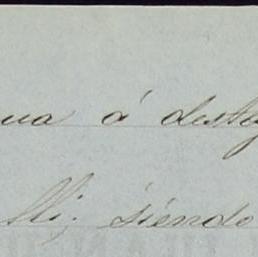 ua á desta
lli; siendo